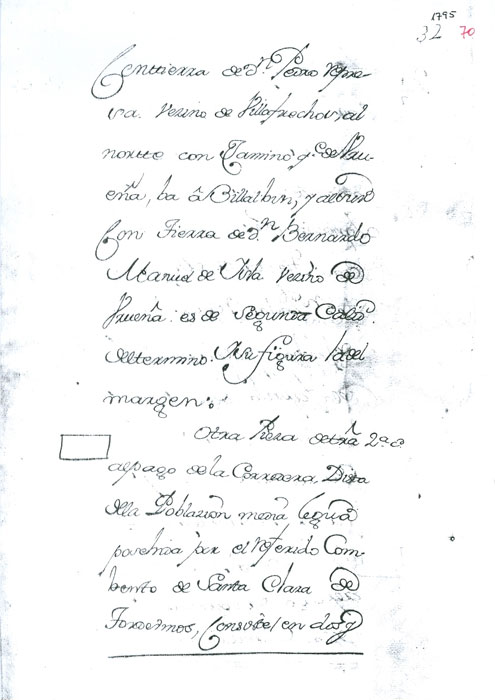 1795
32 70
Con tierra de Dn. Pedro
vezino de Villafrechos, al
nortte con Camino q.e de Uru-
eña, ba â Billalbin, y
Con Tierra de Dn. Bernardo
Manuel de Vila vezino de
Urueña es de segunda Calid.
del termino. Su figura la del
margen:
Otra Pieza de trâ 2.a c.
al pago de la Carrera, Dista
de la Poblazion media legua
posehida por el referido Com-
bento de Santa Clara de
Tordesillas, Consiste en dos